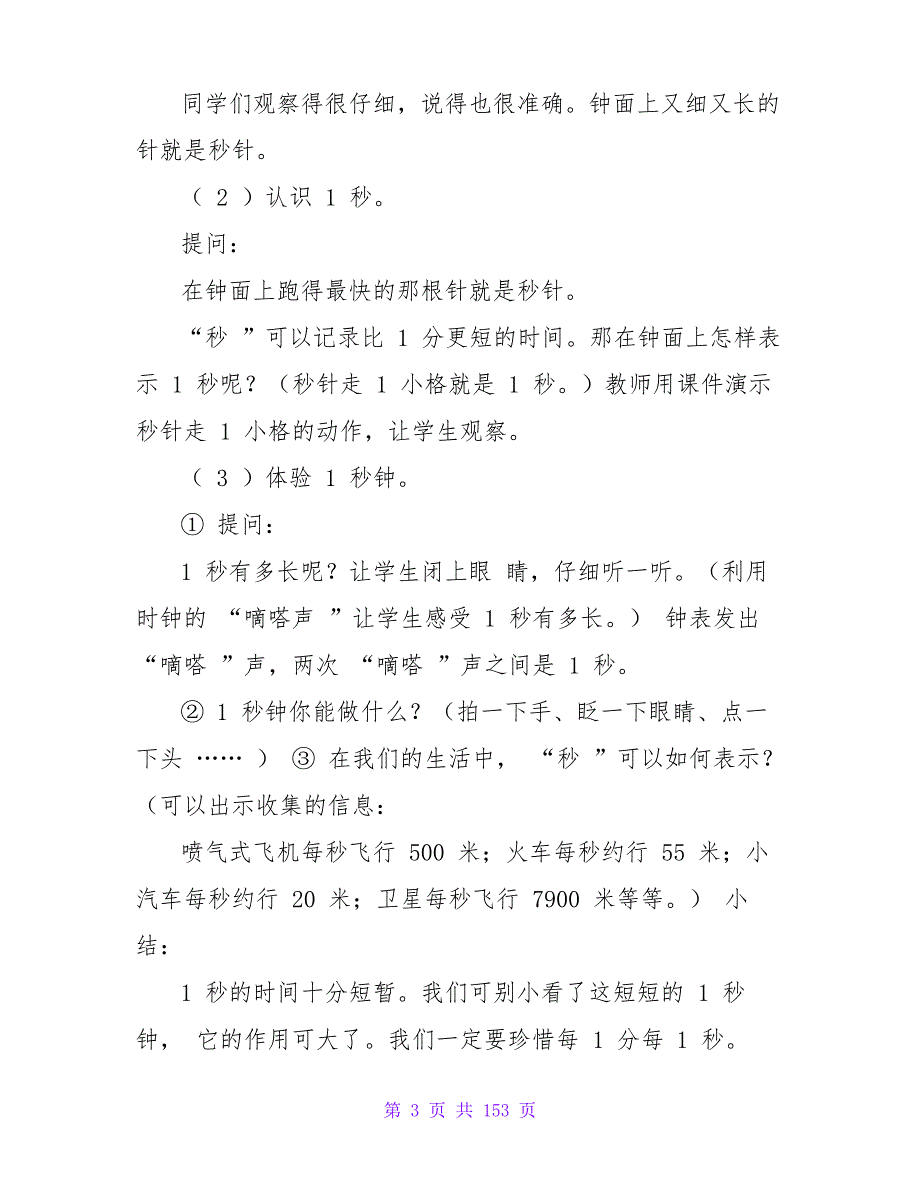 同学们观察得很仔细，说得也很准确。钟面上又细又长的
针就是秒针。
（ 2 ）认识 1 秒。
提问：
在钟面上跑得最快的那根针就是秒针。
“秒 ”可以记录比 1 分更短的时间。那在钟面上怎样表
示 1 秒呢？（秒针走 1 小格就是 1 秒。）教师用课件演示
秒针走 1 小格的动作，让学生观察。
（ 3 ）体验 1 秒钟。
① 提问：
1 秒有多长呢？让学生闭上眼 睛，仔细听一听。（利用
时钟的 “嘀嗒声 ”让学生感受 1 秒有多长。） 钟表发出
“嘀嗒 ”声，两次 “嘀嗒 ”声之间是 1 秒。
② 1 秒钟你能做什么？（拍一下手、眨一下眼睛、点一
下头 …… ） ③ 在我们的生活中， “秒 ”可以如何表示？
（可以出示收集的信息：
喷气式飞机每秒飞行 500 米；火车每秒约行 55 米；小
汽车每秒约行 20 米；卫星每秒飞行 7900 米等等。） 小
结：
1 秒的时间十分短暂。我们可别小看了这短短的 1 秒
钟， 它的作用可大了。我们一定要珍惜每 1 分每 1 秒。
第 3 页 共 153 页